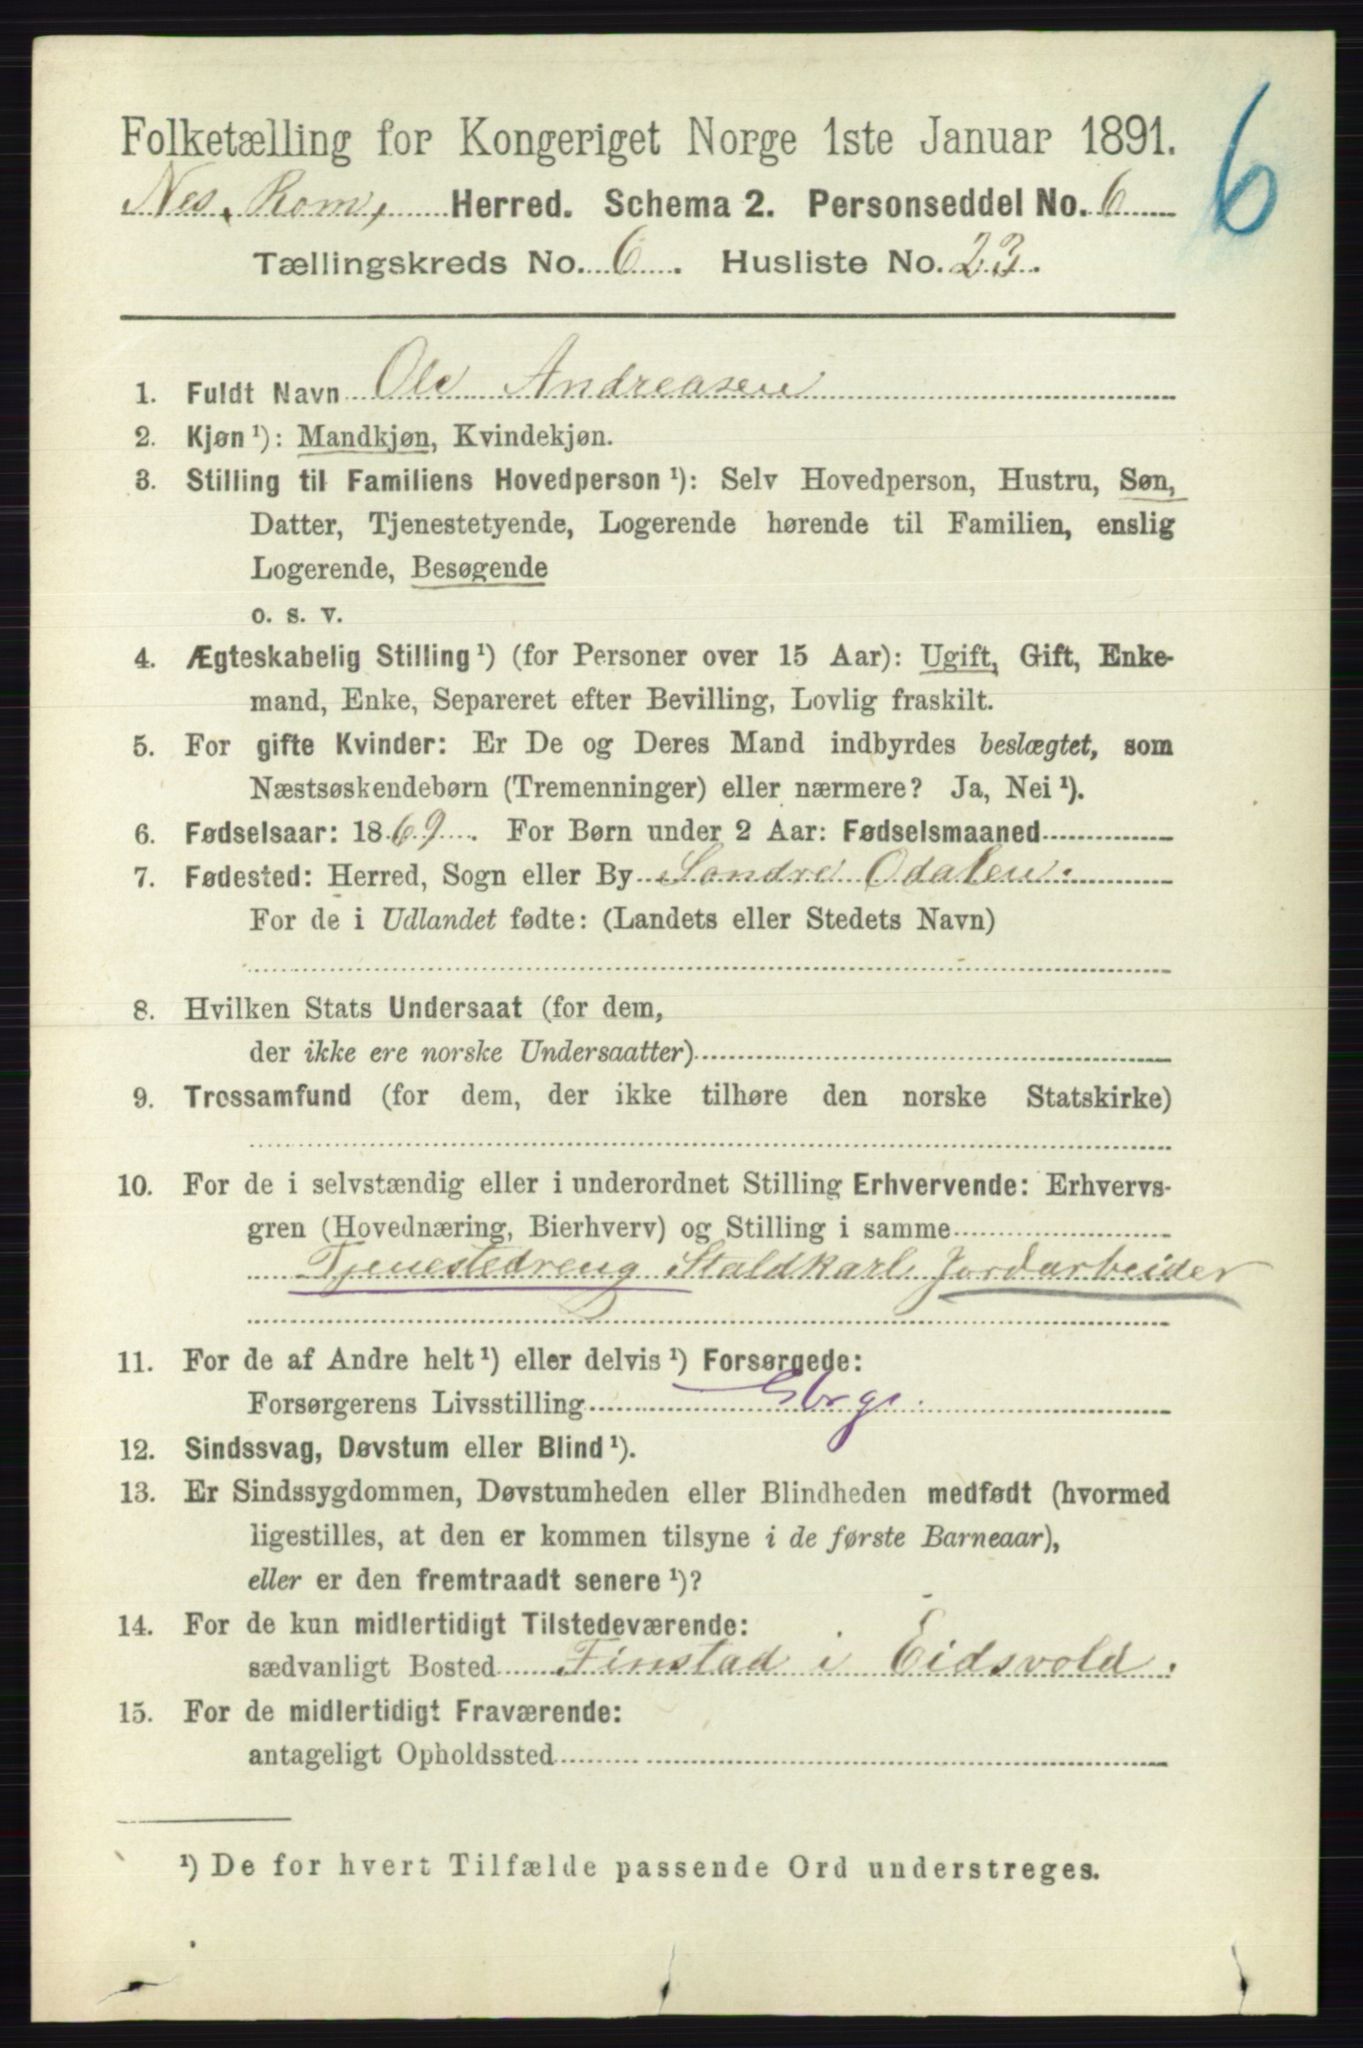 6
Folketælling for Kongeriget Norge 1ste Januar 1891.
Nes, Rom, Herred. Schema 2. Personseddel No. 6
Tællingskreds No. 6. Husliste No. 23.
1. Fuldt Navn Ole Andreasen
2. Kjøn ¹): Mandkjøn, Kvindekjøn.
3. Stilling til Familiens Hovedperson ¹): Selv Hovedperson, Hustru, Søn,
Datter, Tjenestetyende, Logerende hørende til Familien, enslig
Logerende, Besøgende
o. s. v.
4. Ægteskabelig Stilling ¹) (for Personer over 15 Aar): Ugift, Gift, Enke-
mand, Enke, Separeret efter Bevilling, Lovlig fraskilt.
5. For gifte Kvinder: Er De og Deres Mand indbyrdes beslægtet, som
Næstsøskendebørn (Tremenninger) eller nærmere? Ja, Nei ¹).
6. Fødselsaar: 1869. For Børn under 2 Aar: Fødselsmaaned
7. Fødested: Herred, Sogn eller By Søndre Odalen.
For de i Udlandet fødte: (Landets eller Stedets Navn)
8. Hvilken Stats Undersaat (for dem,
der ikke ere norske Undersaatter)
9. Trossamfund (for dem, der ikke tilhøre den norske Statskirke)
10. For de i selvstændig eller i underordnet Stilling Erhvervende: Erhvervs-
gren (Hovednæring, Bierhverv) og Stilling i samme
Tjenestedreng Staldkarl Jordarbeider
11. For de af Andre helt ¹) eller delvis ¹) Forsørgede:
Forsørgerens Livsstilling
12. Sindssvag, Døvstum eller Blind ¹).
13. Er Sindssygdommen, Døvstumheden eller Blindheden medfødt (hvormed
ligestilles, at den er kommen tilsyne i de første Barneaar),
eller er den fremtraadt senere ¹)?
14. For de kun midlertidigt Tilstedeværende:
sædvanligt Bosted Finstad i Eidsvold.
15. For de midlertidigt Fraværende:
antageligt Opholdssted
¹) De for hvert Tilfælde passende Ord understreges.